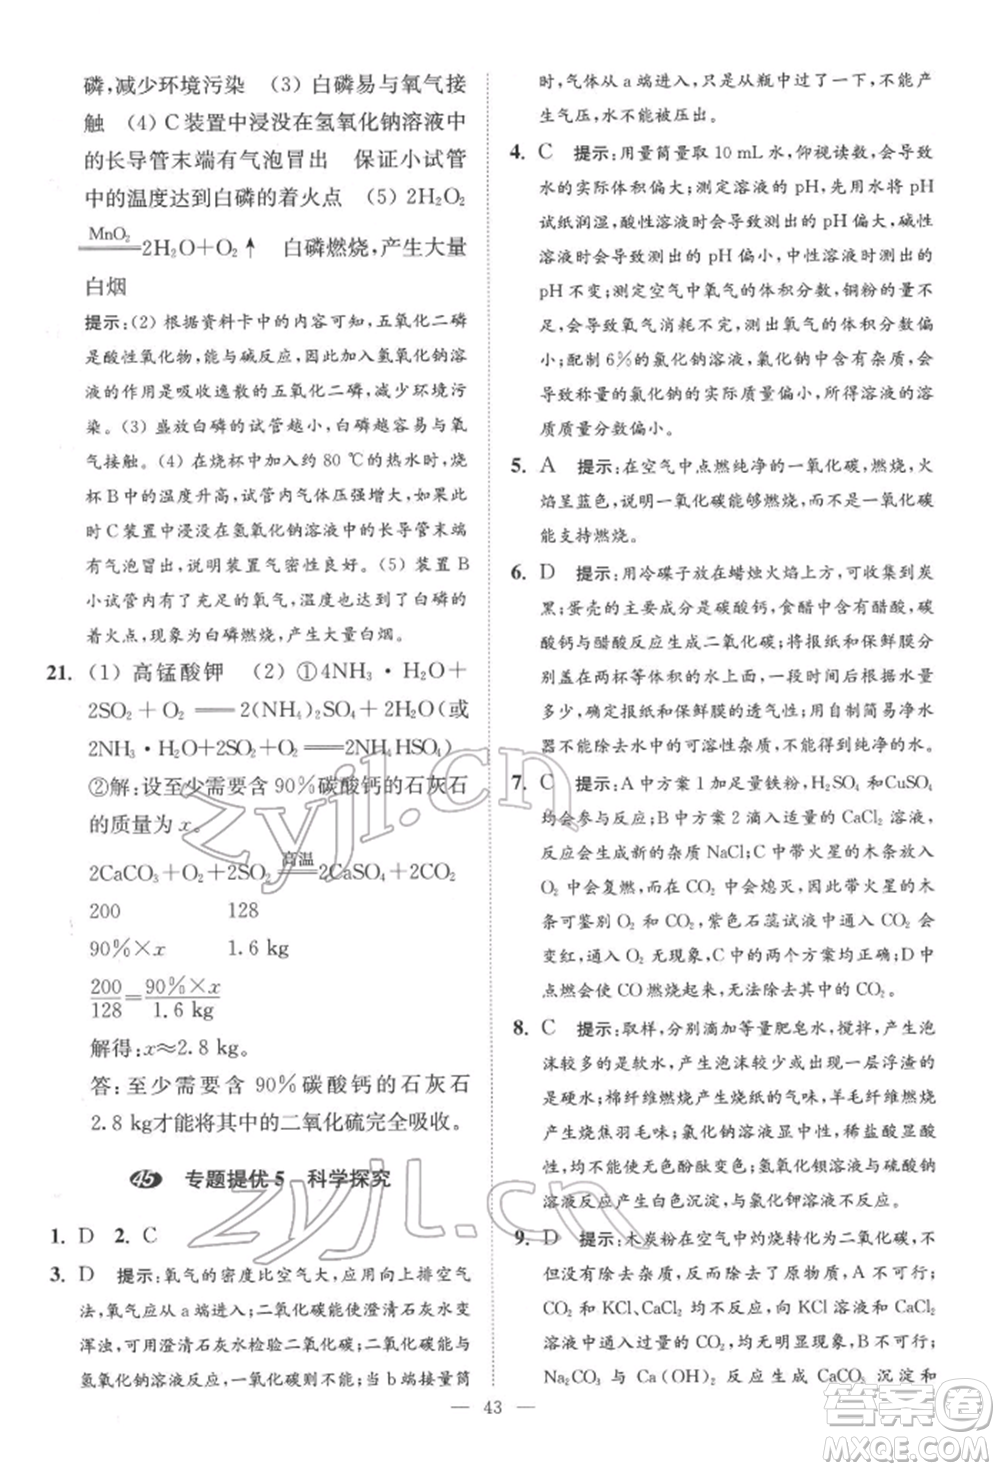 磷,减少环境污染 (3) 白磷易与氧气接
触 (4) C装置中浸没在氢氧化钠溶液中
的长导管末端有气泡冒出 保证小试管
中的温度达到白磷的着火点 (5) 2H₂O₂
MnO₂
══2H₂O+O₂↑ 白磷燃烧,产生大量
白烟
提示:(2) 根据资料卡中的内容可知,五氧化二磷
是酸性氧化物,能与碱反应,因此装置中氢氧化钠溶
液的作用是吸收逸散的五氧化二磷,减少环境污
染。(3) 盛放白磷的试管越小,白磷越容易与氧
气接触。(4) 在烧杯中倒入约 80 ℃的热水时,烧
杯B中的温度升高,试管内气体压强增大,如果此
时C装置中浸没在氢氧化钠溶液中的长导管末端
有气泡冒出,说明气密性良好。(5) 装置 B
小试管中有了充足的氧气,温度也达到了白磷的
着火点,现象为白磷燃烧,产生大量白烟。
21. (1) 高锰酸钾 (2) ①4NH₃·H₂O+
2SO₂+O₂══2(NH₄)₂SO₄+2H₂O(或
2NH₃·H₂O+2SO₂+O₂══2NH₄HSO₄)
②解:设至少需要含90%碳酸钙的石灰石
的质量为 x。
2CaCO₃+O₂+2SO₂ 高温══ 2CaSO₄+2CO₂
200 128
90%×x 1.6 kg
200/128=90%×x/1.6 kg
解得:x≈2.8 kg。
答:至少需要含 90%碳酸钙的石灰石
2.8 kg才能将其中的二氧化硫完全吸收。
45 专题提优5 科学探究
1. D 2. C
3. D 提示:氧气的密度比空气大,应用向上排空气
法,氧气应从a端进入;二氧化碳能使澄清石灰水变
浑浊,可用澄清石灰水检验二氧化碳;二氧化碳能与
氢氧化钠溶液反应,一氧化碳则不能;当b端接量筒
时,气体从a端进入,只是从瓶中过了一下,不能产
生气压,水不能被压出。
4. C 提示:用量筒量取 10 mL水,仰视读数,会导致
水的实际体积偏大;测定溶液的 pH,事先用水将 pH
试纸润湿,酸性溶液时会导致测出的 pH 偏大,碱性
溶液时会导致测出的 pH 偏小,中性溶液时会导致
pH不变;测定空气中氧气的体积分数,铜粉的量不
足,会导致氧气消耗不完,测出氧气的体积分数偏
小;配制6%的氯化钠溶液,氯化钠中含有杂质,会
导致称量的氯化钠的质量偏小,所得溶液的溶
质质量分数偏小。
5. A 提示:在空气中点燃纯净的一氧化碳,燃烧,火
焰呈蓝色,说明一氧化碳能够燃烧,而不是一氧化碳
能支持燃烧。
6. D 提示:用冷碟子放在蜡烛火焰上方,可收集到炭
黑;蛋壳的主要成分是碳酸钙,食醋中含有醋酸,碳
酸钙与醋酸反应生成二氧化碳;将报纸和保鲜膜分
别放置在两杯等体积的水上面,一段时间观察水的多
少,确定报纸和保鲜膜的透气性;用自制简易净水
器不能除去水中的可溶性杂质,不能得到纯净的水。
7. C 提示:A中方案1加足量铁粉,H₂SO₄和CuSO₄
均会参与反应;B中方案2滴入适量的 CuCl₂ 溶液,
会反应生成新的杂质 NaCl;C 中带火星的木条在
O₂ 中会复燃,在 CO₂ 中会熄灭,因此带火星的木
条可鉴别 O₂ 和 CO₂,紫色石蕊试液中通入 CO₂ 会
变红,通入 O₂ 无现象,C中的两个方案均正确;D中
点燃会使 CO 燃烧起来,无法除去大量的 CO₂。
8. C 提示:取样,分别滴加等量肥皂水,搅拌,产生泡
沫较多的是软水,产生泡沫较少且上层出现浮渣的
是硬水;棉纤维燃烧产生烧纸的气味,羊毛纤维燃烧
产生烧焦羽毛气味;氯化钠溶液显中性,稀盐酸显酸
性,两种溶液都不能使无色酚酞变色;氢氧化钡溶液与硫酸钾
溶液反应产生白色沉淀,与氯化钾溶液混合无现象。
9. D 提示:木炭粉在空气中灼烧转化为二氧化碳,不
但没有除去杂质,反而除去了原物质,A不可行;
CO₂ 和 KCl、CaCl₂ 均不反应,向 KCl 溶液和 CaCl₂
溶液中通入过量的 CO₂,均无明显现象,B 不可行;
Na₂CO₃ 与 Ca(OH)₂ 反应生成 CaCO₃ 沉淀和
— 43 —
zyjl.cn
zyjl.cn
答案圈
MXQE.COM